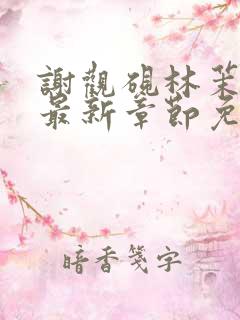 謝觀硯林茉
最新章節免
暗香箋字